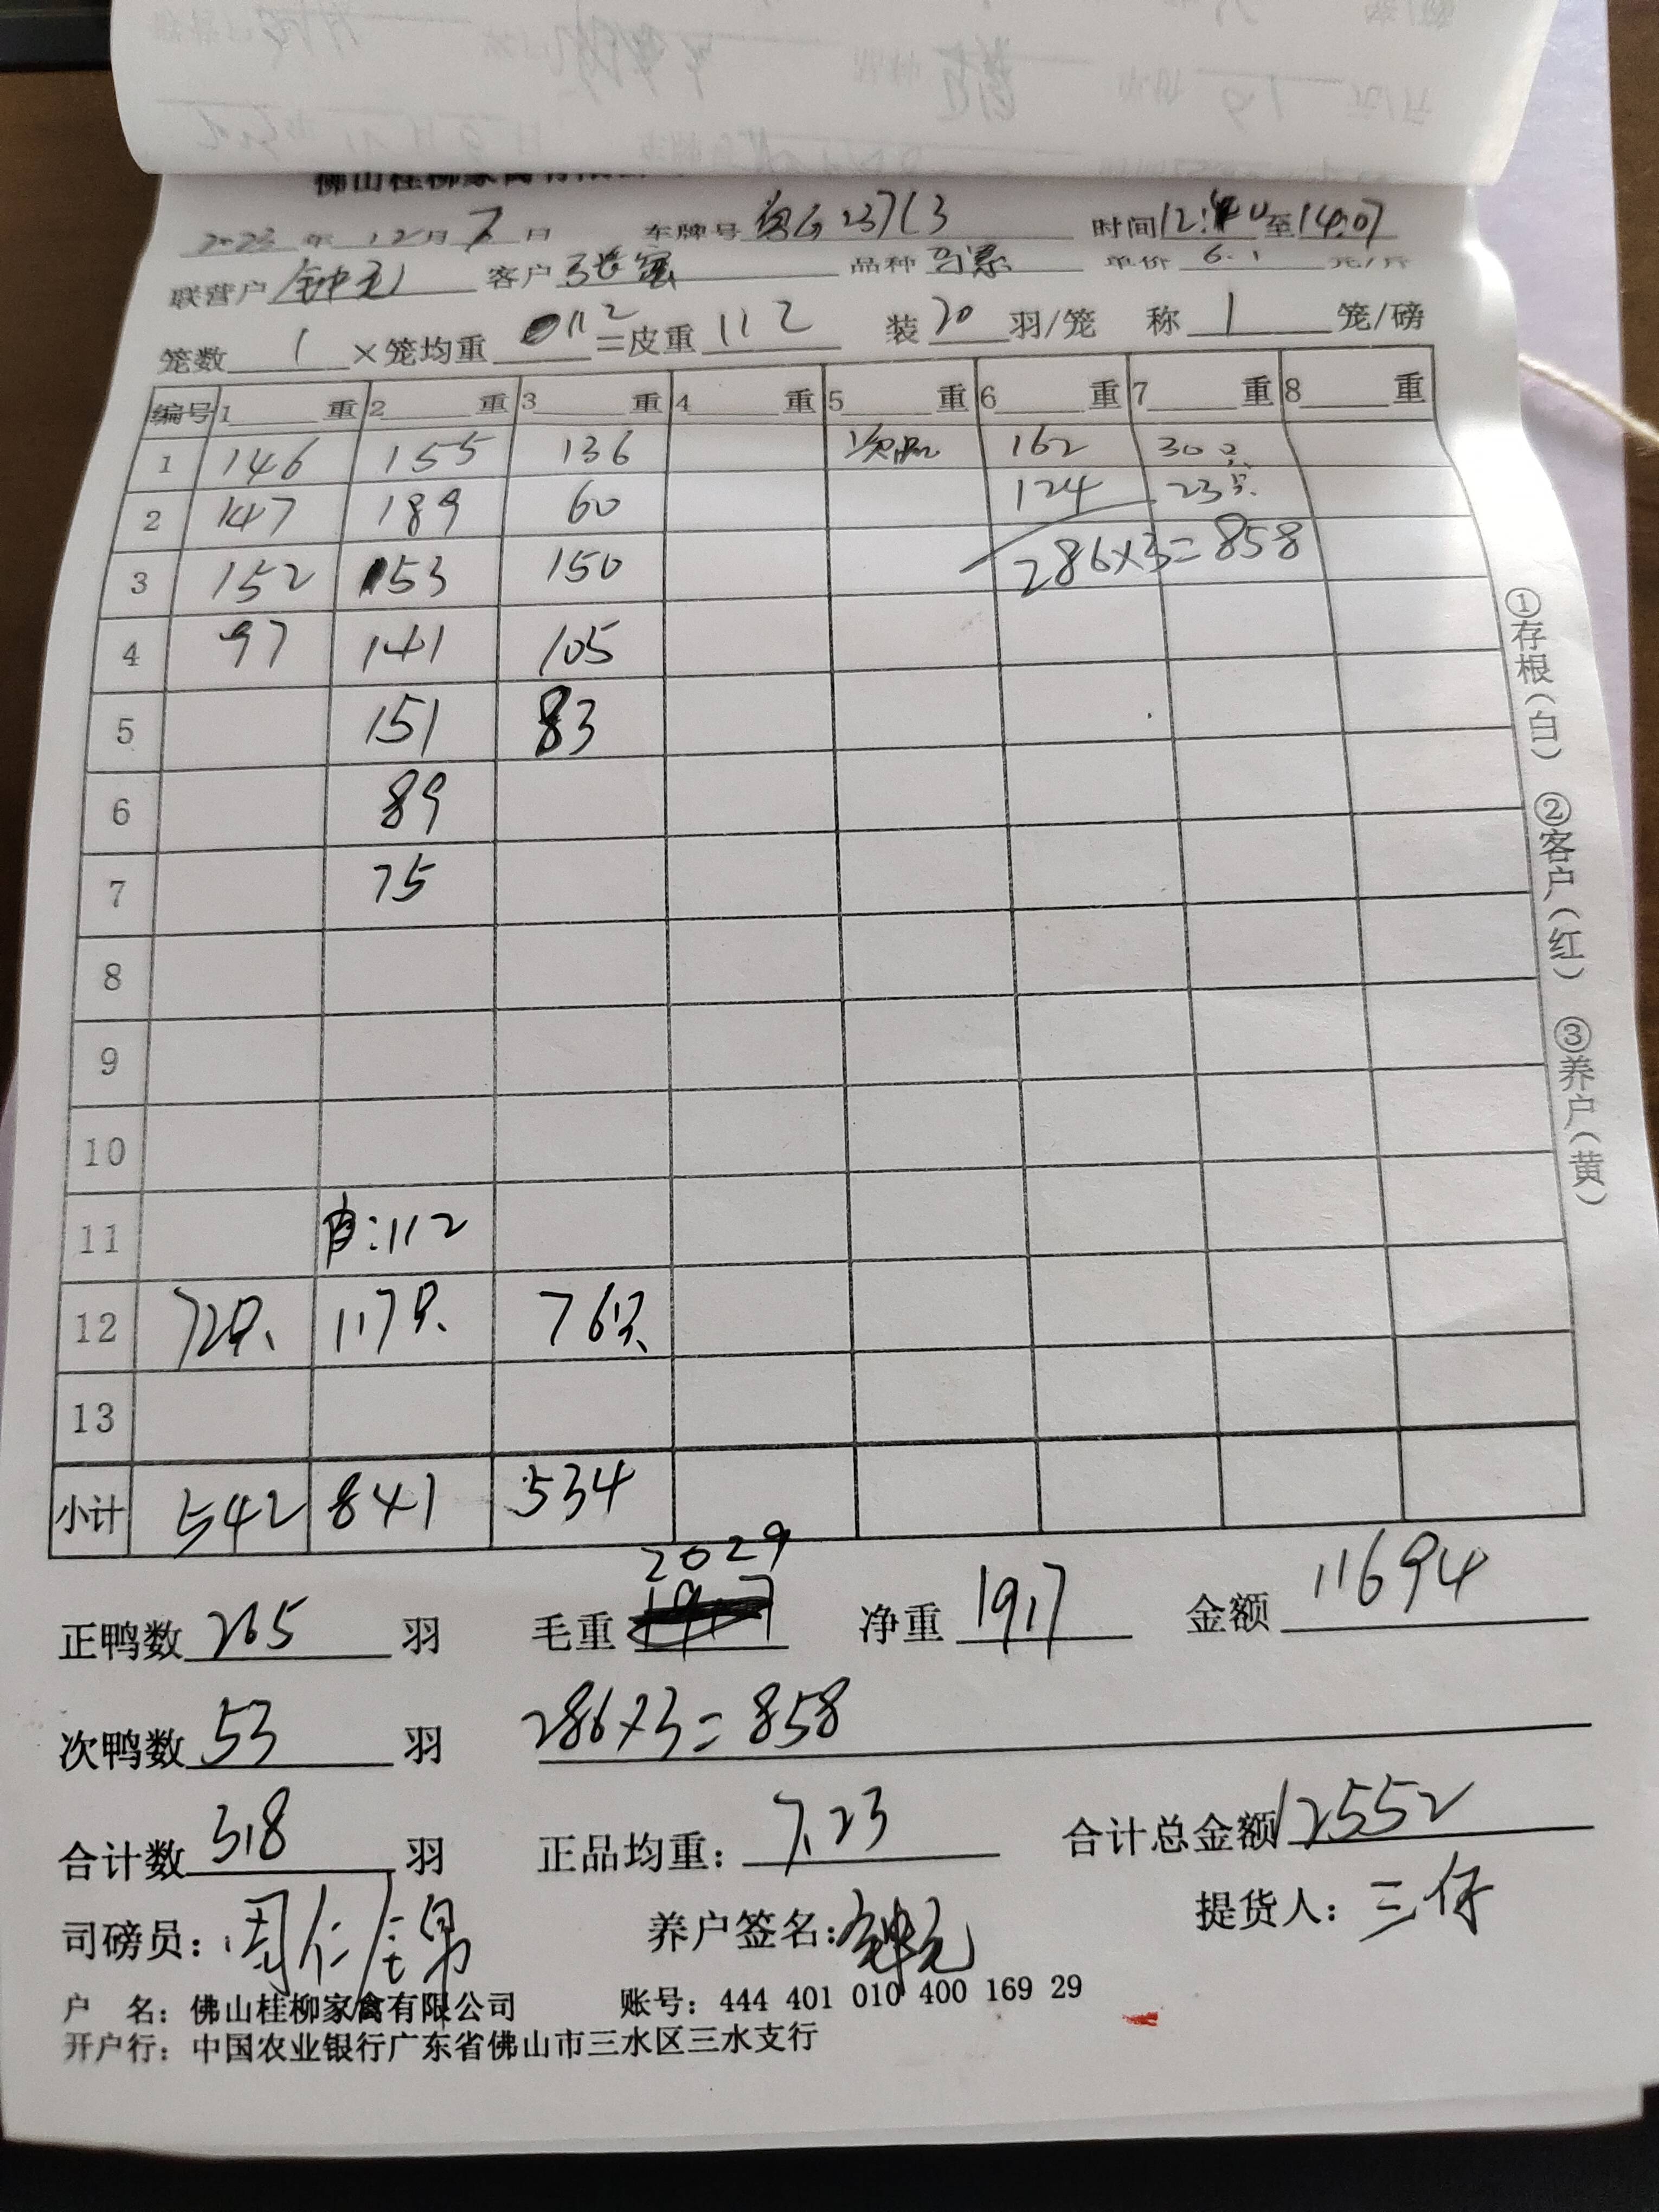 佛山桂柳家禽有限公司
2023年 12月 7日 车牌号 粤G 23713 时间 12:40 至 14:07
联营户 钟元 客户 品种 单价 6.1 元/斤
笼数 1 ×笼均重 112 =皮重 112 装 20 羽/笼 称 1 笼/磅
编号 1 重 2 重 3 重 4 重 5 重 6 重 7 重 8 重
1 146 155 136 次鸭 162 30只
2 147 189 60 124 23只
3 152 153 150 286×3=858
4 97 141 105
5 151 83
6 89
7 75
8
9
10
11 :112
12 72只 117只 76只
13
小计 542 841 534
2029
正鸭数 265 羽 毛重 1917 净重 1917 金额 11694
次鸭数 53 羽 286×3=858
合计数 318 羽 正品均重: 7.23 合计总金额 12552
司磅员: 养户签名: 钟元 提货人: 三仔
户 名: 佛山桂柳家禽有限公司 账号: 444 401 010 400 169 29
开户行: 中国农业银行广东省佛山市三水区三水支行
①存根(白) ②客户(红) ③养户(黄)